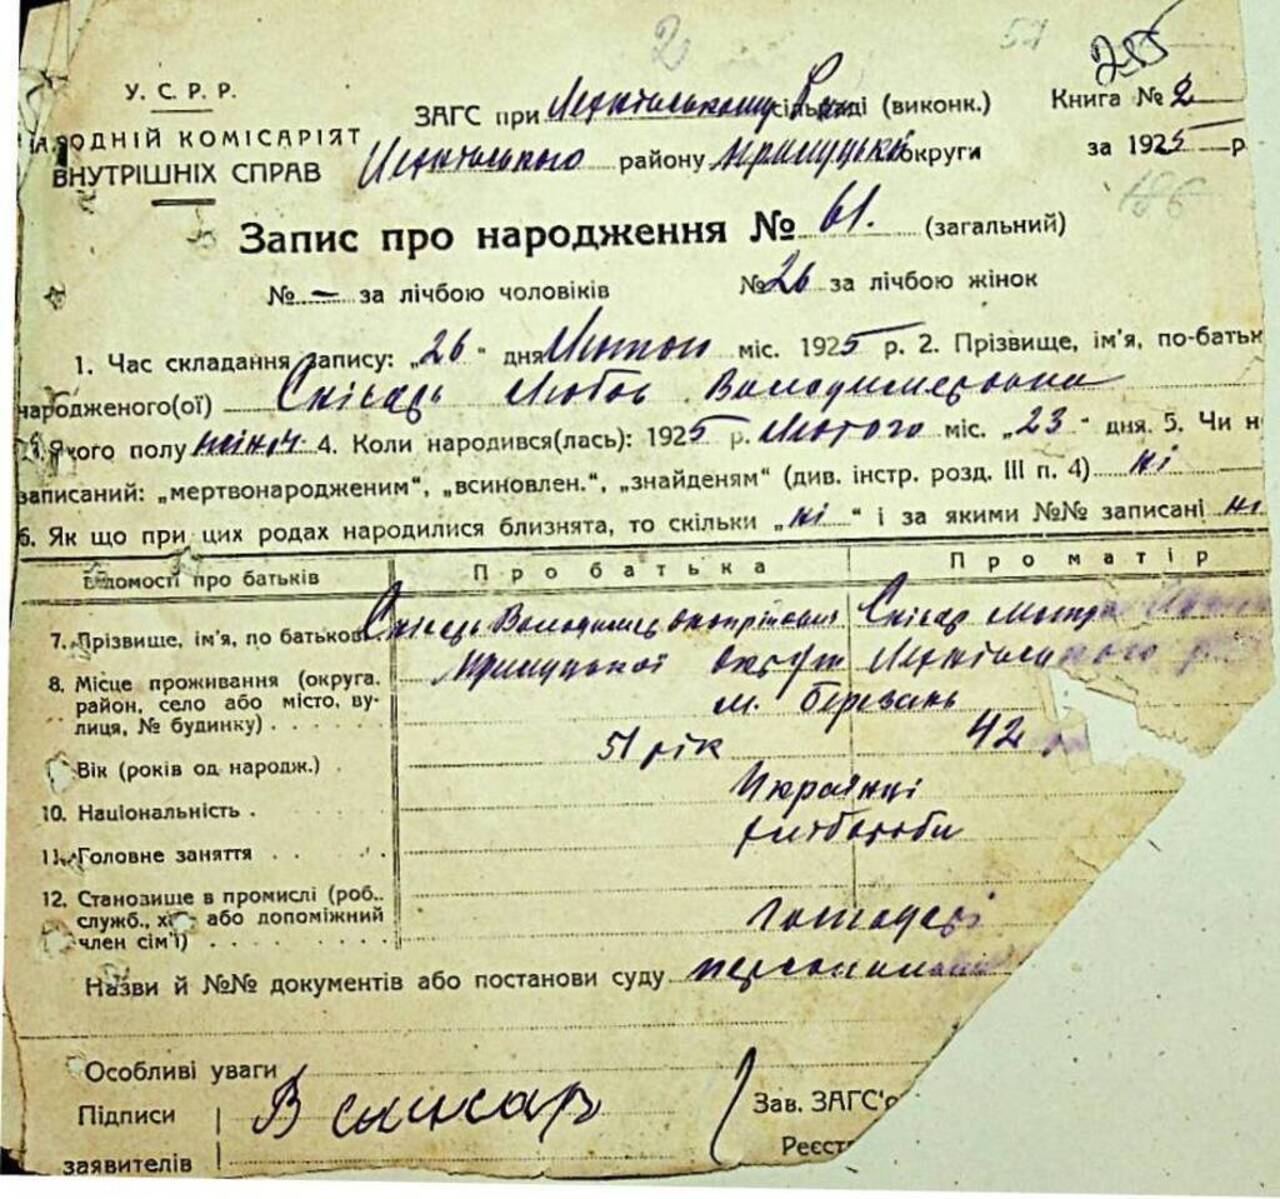 2
57
255
У. С. Р. Р.
НАРОДНІЙ КОМІСАРІЯТ
ВНУТРІШНІХ СПРАВ
ЗАГС при сільраді (виконк.)
Книга № 2
району Прилуцької округи
за 1925 р.
186
Запис про народження № 61. (загальний)
№ — за лічбою чоловіків
№ 26 за лічбою жінок
1. Час складання запису: „26" дня Лютого міс. 1925 р. 2. Прізвище, ім'я, по-батьк
народженого(ої) Скісарь Любов Володимеровна
Якого полу жіноч 4. Коли народився(лась): 1925 р. Лютого міс. „23" дня. 5. Чи н
записаний: „мертвонародженим", „всиновлен.", „знайденям" (див. інстр. розд. III п. 4) ні
6. Як що при цих родах народилися близнята, то скільки „ні" і за якими №№ записані ні
Відомості про батьків
Про батька
Про матір
7. Прізвище, ім'я, по батькові Скісарь Володимер Скісар Мотря
8. Місце проживання (округа, район, село або місто, ву-
лиця, № будинку)
Прилуцької округи
м. Березань
Вік (років од народж.) 51 рік 42
10. Національність Українці
11. Головне заняття хлібороби
12. Становище в промислі (роб.,
служб., х або допоміжний
член сім'ї)
Господарі
Назви й №№ документів або постанови суду персональні
Особливі уваги
Підписи
заявителів
В Скисар
Зав. ЗАГС'о
Реєст